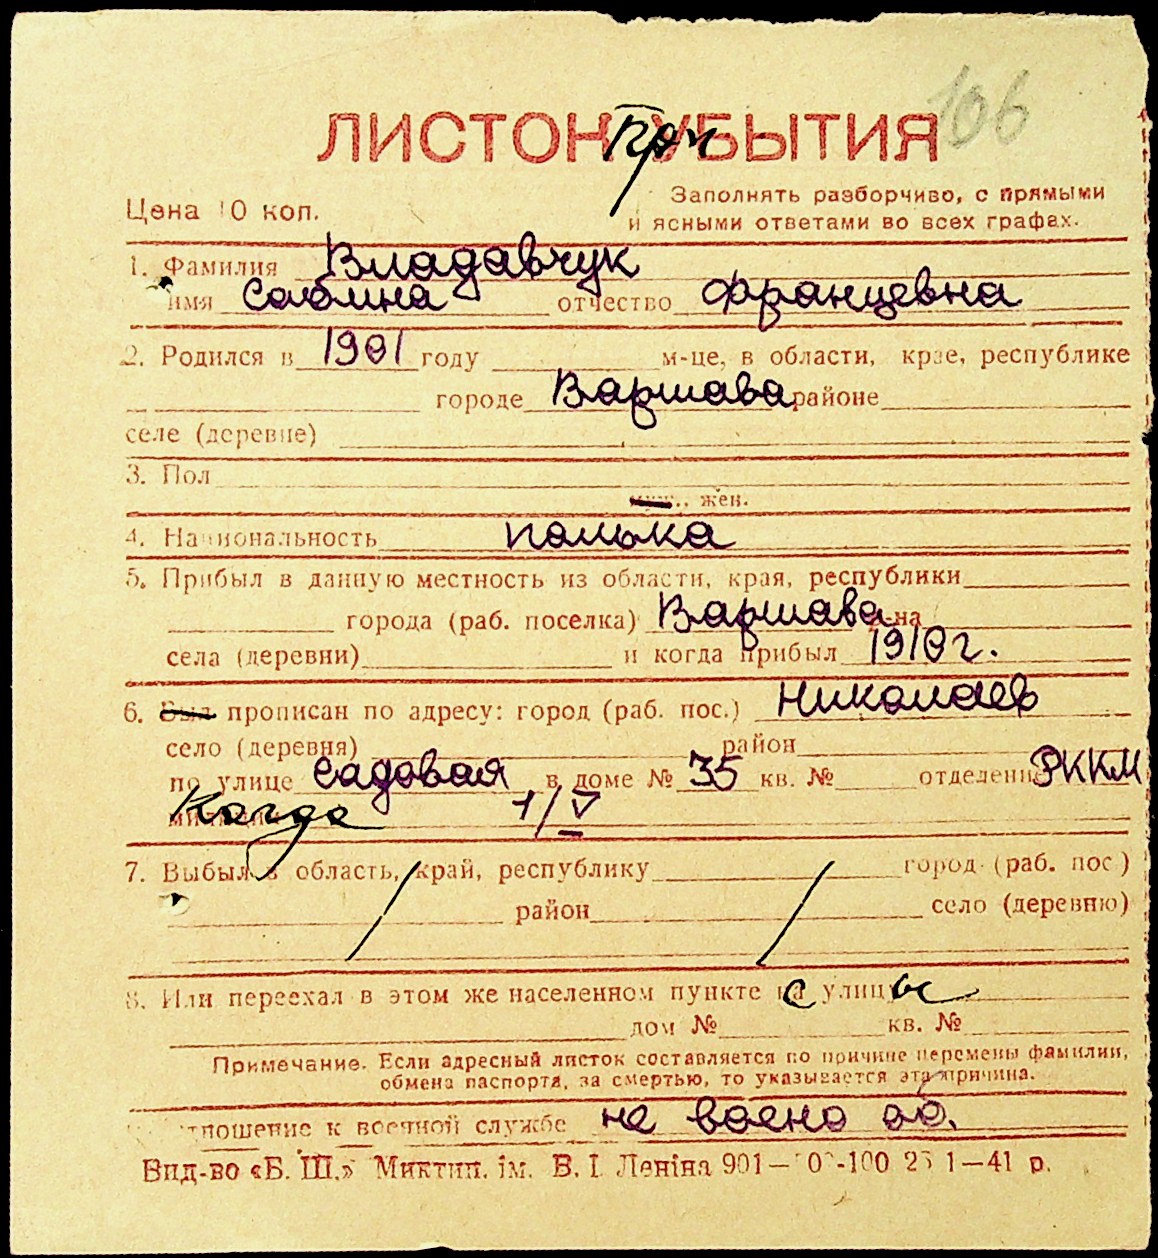 106
ЛИСТОК УБЫТИЯ
При
Цена 10 коп.
Заполнять разборчиво, с прямыми
и ясными ответами во всех графах.
1. Фамилия Владавчук
имя Сабина отчество Францевна
2. Родился в 1901 году м-це, в области, крае, республике
городе Варшава районе
селе (деревне)
3. Пол
муж., жен.
4. Национальность полька
5. Прибыл в данную местность из области, края, республики
города (раб. поселка) Варшава р-на
села (деревни) и когда прибыл 1910 г.
6. Был прописан по адресу: город (раб. пос.) Николаев
село (деревня) район
по улице Садовая в доме № 35 кв. № отделение РККМ
милиции Когда 1/V
7. Выбыл в область, край, республику город (раб. пос.)
район село (деревню)
8. Или переехал в этом же населенном пункте на улицу с ы
дом № кв. №
Примечание. Если адресный листок составляется по причине перемены фамилии,
обмена паспорта, за смертью, то указывается эта причина.
Отношение к военной службе не воено об.
Вид-во «Б. Ш.» Миктип. ім. В. І. Леніна 901— 1—41 р.